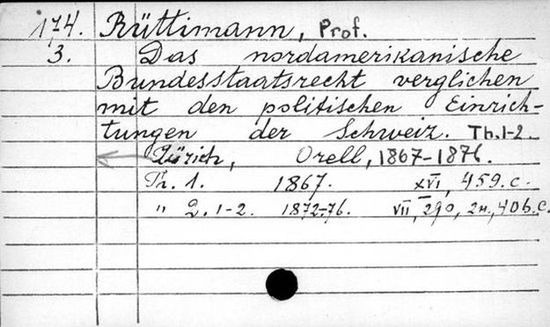 174. Rüttimann, Prof.
3. Das nordamerikanische
Bundesstaatsrecht verglichen
mit den politischen Einrich-
tungen der Schweiz. Th. 1-2.
Zürich, Orell, 1867-1876.
Th. 1. 1867. XVI, 459. c.
" 2. 1-2. 1872-76. VII, 290, 406. c.